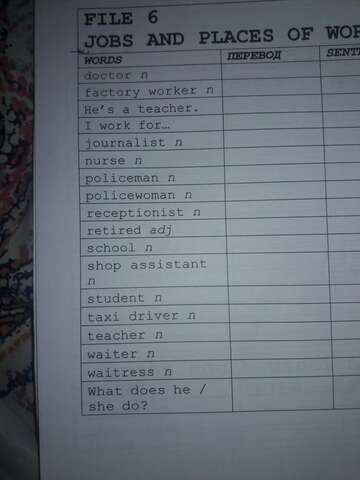 FILE 6
JOBS AND PLACES OF WOR
WORDS ПЕРЕВОД SENT
doctor n
factory worker n
He's a teacher.
I work for…
journalist n
nurse n
policeman n
policewoman n
receptionist n
retired adj
school n
shop assistant
n
student n
taxi driver n
teacher n
waiter n
waitress n
What does he /
she do?